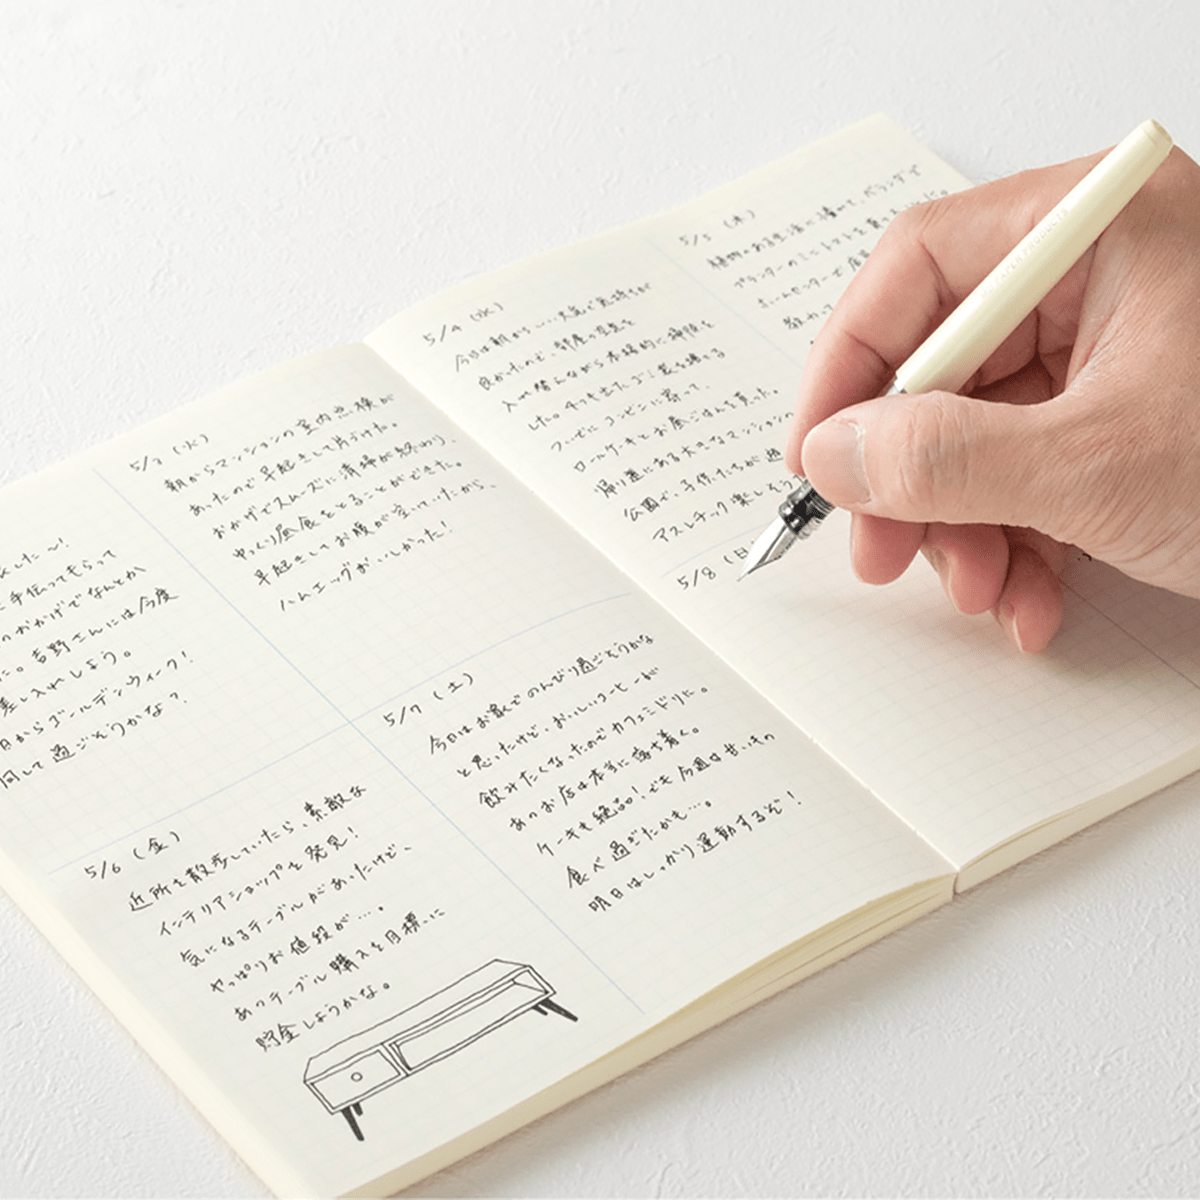 しした〜!
手伝ってもらって
のおかげでなんとか
た。吉野さんには今度
差し入れしよう。
日からゴールデンウィーク!
何して過ごそうかな?
5/3 (火)
朝からマンションの室内点検が
あったので早起きして片づけた。
おかげでスムーズに清掃が終わり、
ゆっくり昼食をとることができた。
早起きしてお腹が空いていたから、
ハムエッグがおいしかった!
5/6 (金)
近所を散歩していたら、素敵な
インテリアショップを発見!
気になるテーブルがあったけど、
やっぱりお値段が…。
あのテーブル購入を目標に
貯金しようかな。
5/7 (土)
今日はお家でのんびり過ごそうかな
と思ったけど、おいしいコーヒーが
飲みたくなったのでカフェミドリに。
あのお店は本当に落ち着く。
ケーキも絶品!でも今週は甘いもの
食べ過ぎたかも…。
明日はしっかり運動するぞ!
5/4 (水)
今日は朝からいい天気で気持ちが
良かったので、部屋の空気を
入れ替えながら本格的に掃除を
した。4つも出たゴミ袋を捨てる
ついでにコンビニに寄って、
ロールケーキとお昼ごはんを買った。
帰り道にある大きなマンションの
公園で、子供たちが遊
アスレチック楽しそう
5/5 (木)
植物のある生活に憧れて、ベランダで
プランターのミニトマトを育て
ホームセンターで店
教わって
5/8 (日